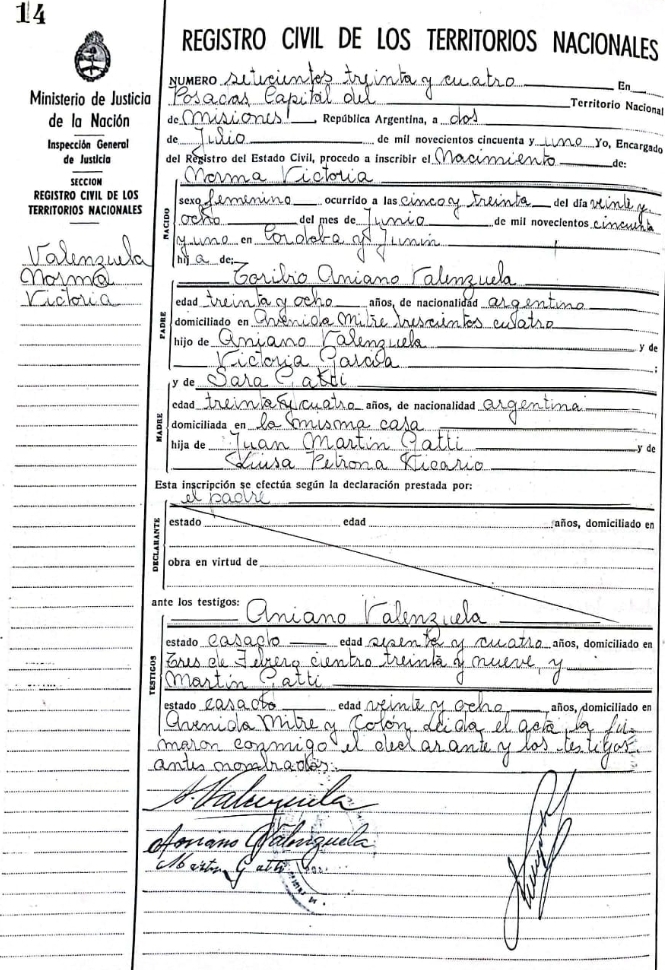 14
Ministerio de Justicia
de la Nación
Inspección General
de Justicia
SECCION
REGISTRO CIVIL DE LOS
TERRITORIOS NACIONALES
Valenzuela
Norma
Victoria
REGISTRO CIVIL DE LOS TERRITORIOS NACIONALES
NUMERO setecientos treinta y cuatro En
Posadas Capital del Territorio Nacional
de Misiones República Argentina, a dos
de Julio de mil novecientos cincuenta y uno Yo, Encargado
del Registro del Estado Civil, procedo a inscribir el Nacimiento de:
NACIDO
Norma Victoria
sexo femenino ocurrido a las cinco y treinta del día veinte y
ocho del mes de Junio de mil novecientos cincuenta
y uno en Cordoba y Junin
hija de:
PADRE
Toribio Aniano Valenzuela
edad treinta y ocho años, de nacionalidad argentino
domiciliado en Avenida Mitre trescientos cuatro
hijo de Aniano Valenzuela y de
Victoria ;
y de Sara Gatti
MADRE
edad treinta y cuatro años, de nacionalidad argentina
domiciliada en la misma casa
hija de Juan Martin Gatti y de
Luisa Petrona Vicario
Esta inscripción se efectúa según la declaración prestada por:
el padre
DECLARANTE
estado edad años, domiciliado en
obra en virtud de
ante los testigos: Aniano Valenzuela
TESTIGOS
estado casado edad sesenta y cuatro años, domiciliado en
Tres de Febrero ciento treinta y nueve, y
Martin Gatti
estado casado edad veinte y ocho años, domiciliado en
Avenida Mitre y Colón Leida el acta la fir-
maron conmigo el declarante y los testigos
antes nombrados:
Valenzuela
Aniano Valenzuela
Martin Gatti